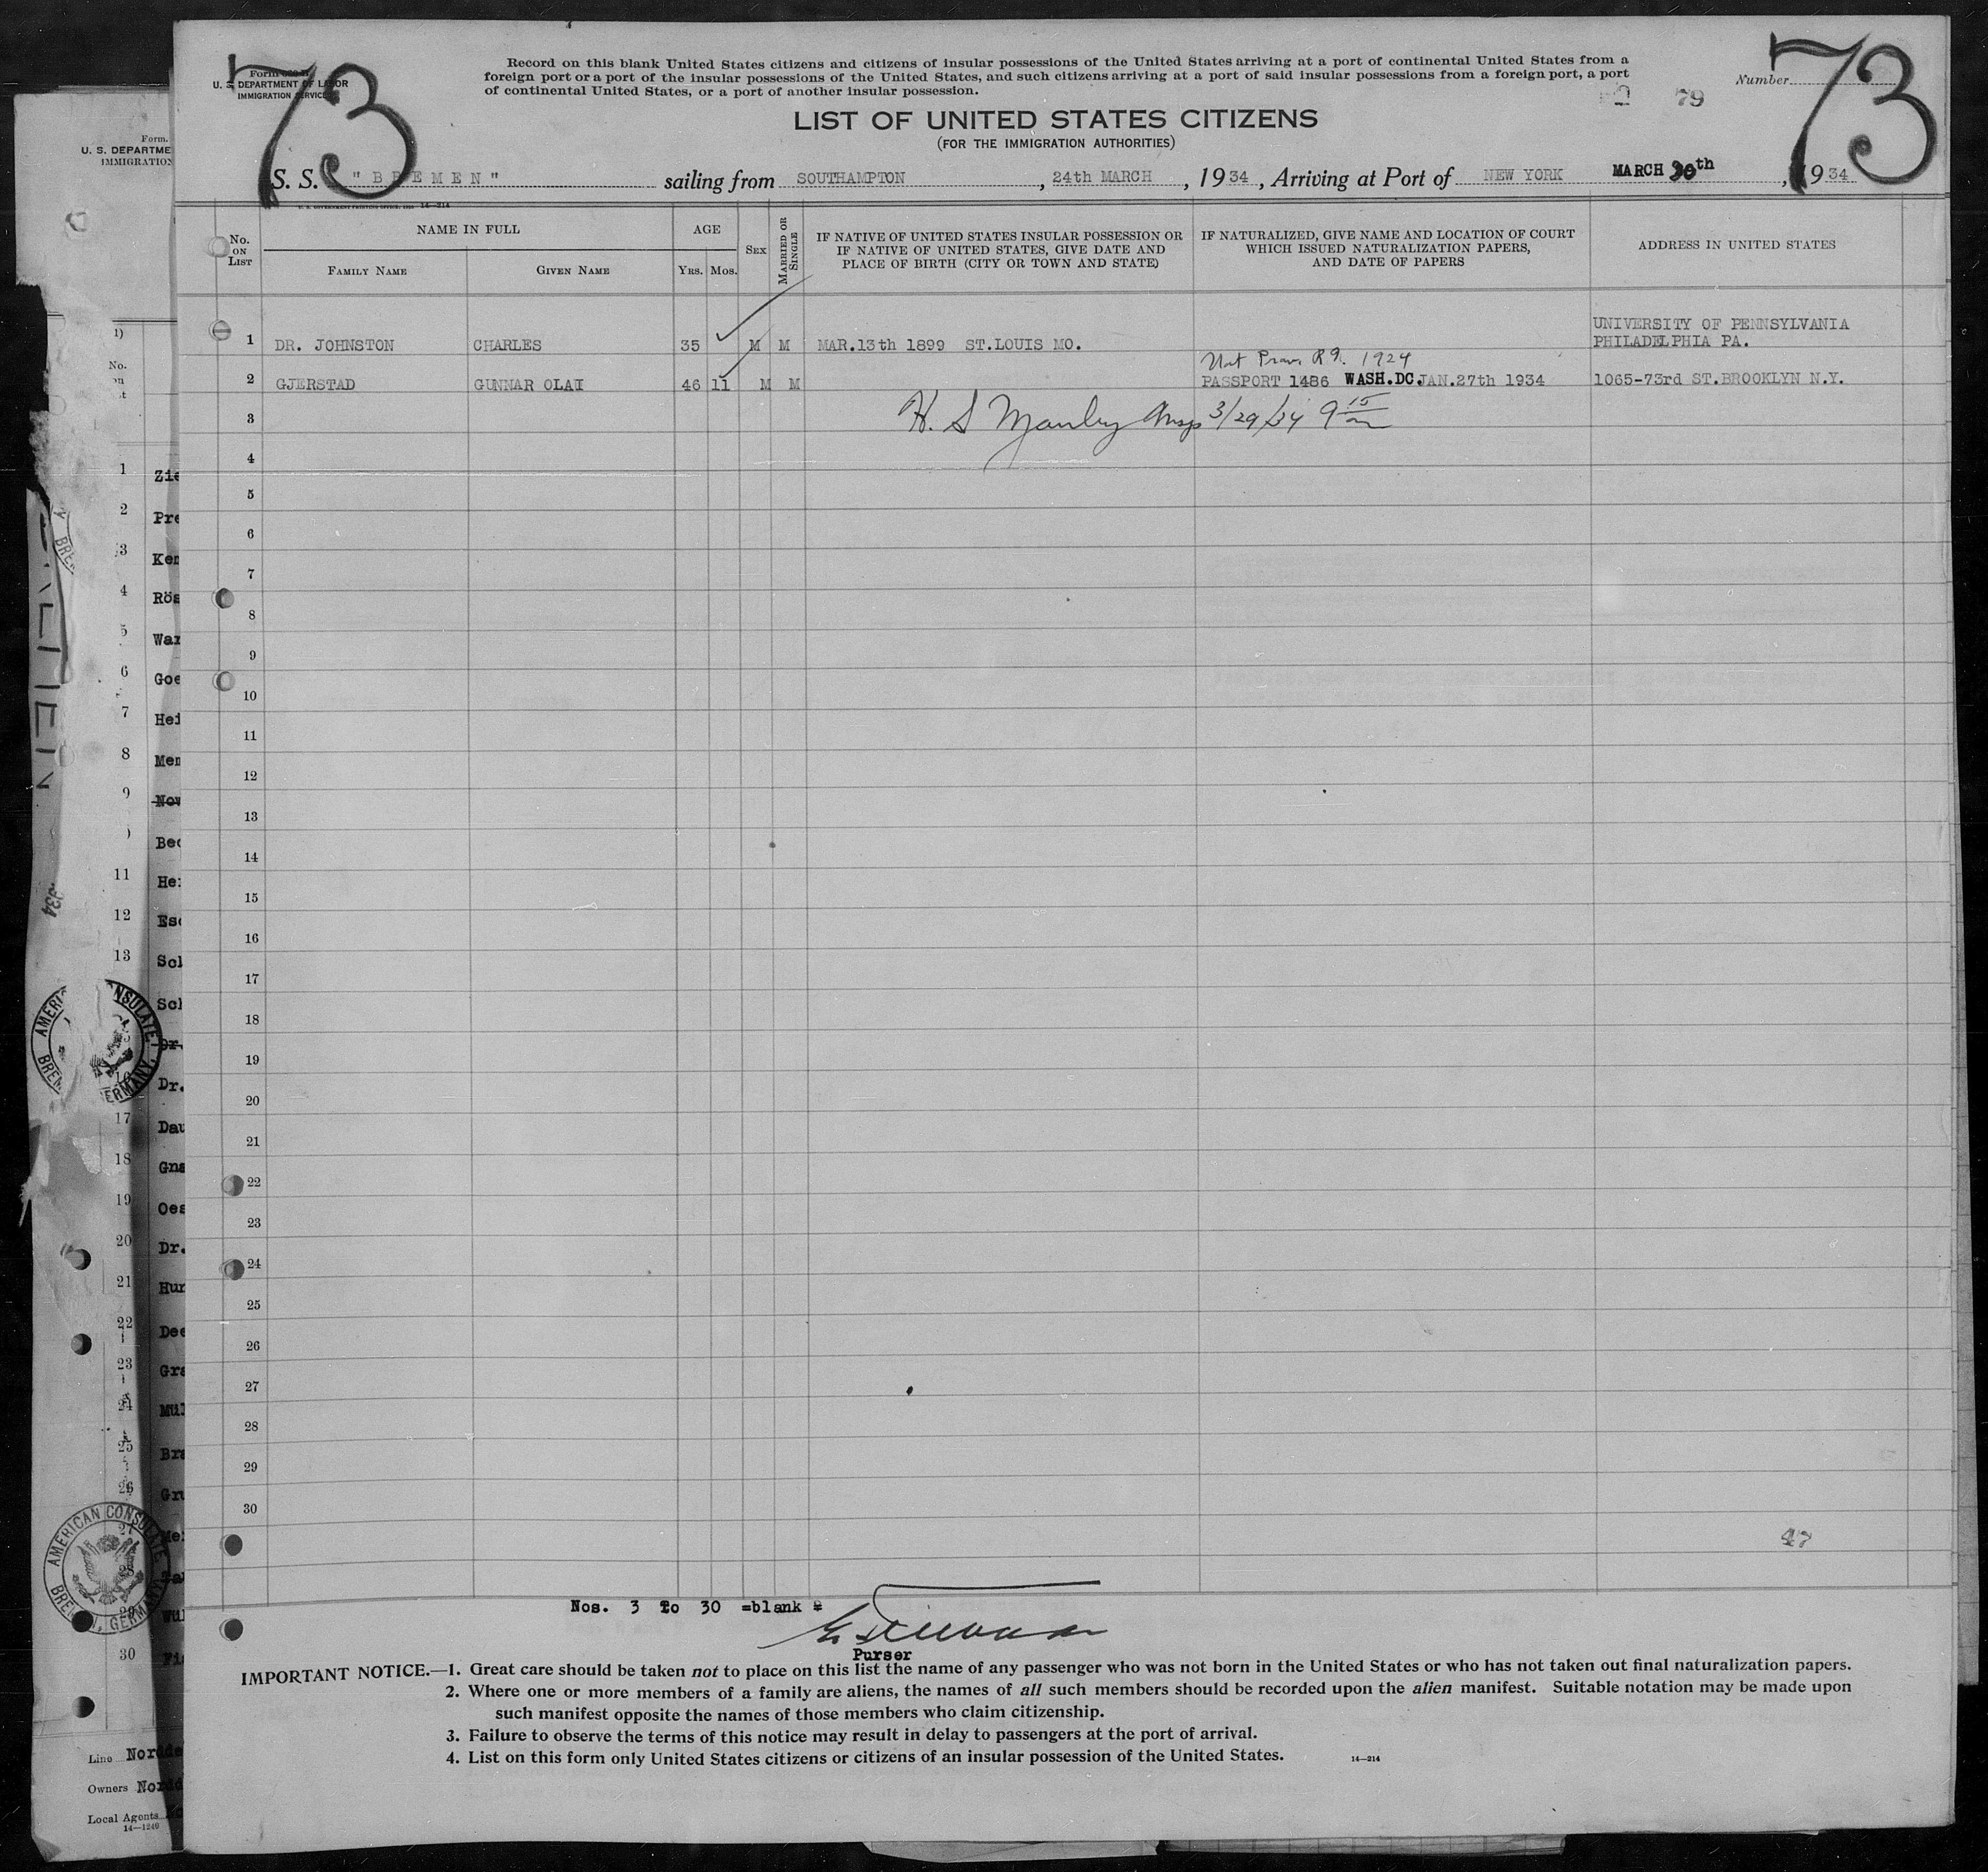 73
Form
U. S. DEPARTMENT OF LABOR
IMMIGRATION SERVICE
Record on this blank United States citizens and citizens of insular possessions of the United States arriving at a port of continental United States from a
foreign port or a port of the insular possessions of the United States, and such citizens arriving at a port of said insular possessions from a foreign port, a port
of continental United States, or a port of another insular possession.
Number
73
79
LIST OF UNITED STATES CITIZENS
(FOR THE IMMIGRATION AUTHORITIES)
S. S. "BREMEN" sailing from SOUTHAMPTON, 24th MARCH, 1934, Arriving at Port of NEW YORK MARCH 30th, 1934
U. S. GOVERNMENT PRINTING OFFICE 14—214
No. ON LIST
NAME IN FULL
FAMILY NAME
GIVEN NAME
AGE
YRS. MOS.
SEX
MARRIED OR SINGLE
IF NATIVE OF UNITED STATES INSULAR POSSESSION OR
IF NATIVE OF UNITED STATES, GIVE DATE AND
PLACE OF BIRTH (CITY OR TOWN AND STATE)
IF NATURALIZED, GIVE NAME AND LOCATION OF COURT
WHICH ISSUED NATURALIZATION PAPERS,
AND DATE OF PAPERS
ADDRESS IN UNITED STATES
UNIVERSITY OF PENNSYLVANIA
1 DR. JOHNSTON CHARLES 35 M M MAR.13th 1899 ST.LOUIS MO. PHILADELPHIA PA.
1924
2 GJERSTAD GUNNAR OLAI 46 11 M M PASSPORT 1486 WASH.DC.JAN.27th 1934 1065-73rd ST.BROOKLYN N.Y.
3 H. S Manley Insp 3/29/34 9 15
4
5
6
7
8
9
10
11
12
13
14
15
16
17
18
19
20
21
22
23
24
25
26
27
28
29
30
47
Nos. 3 to 30 =blank=
Purser
IMPORTANT NOTICE.—1. Great care should be taken not to place on this list the name of any passenger who was not born in the United States or who has not taken out final naturalization papers.
2. Where one or more members of a family are aliens, the names of all such members should be recorded upon the alien manifest. Suitable notation may be made upon
such manifest opposite the names of those members who claim citizenship.
3. Failure to observe the terms of this notice may result in delay to passengers at the port of arrival.
4. List on this form only United States citizens or citizens of an insular possession of the United States.
14—214
Form.
U. S. DEPARTME
IMMIGRATION
No.
1 Zie
2 Pre
3 Ken
4 Rös
5 War
6 Goe
7 Hei
8 Men
9 Nov
Bec
11 He
12 Esc
13 Scl
Scl
Dr.
17 Dau
18 Gna
19 Oes
20 Dr.
21 Hur
22 Dee
23 Gra
24 Mül
25 Bra
26 Gru
AMERICAN CONSULATE
BREMEN, GERMANY
AMERICAN CONSULATE
BREMEN, GERMANY
30
Line Nordde
Owners Nordd
Local Agents
14—1240